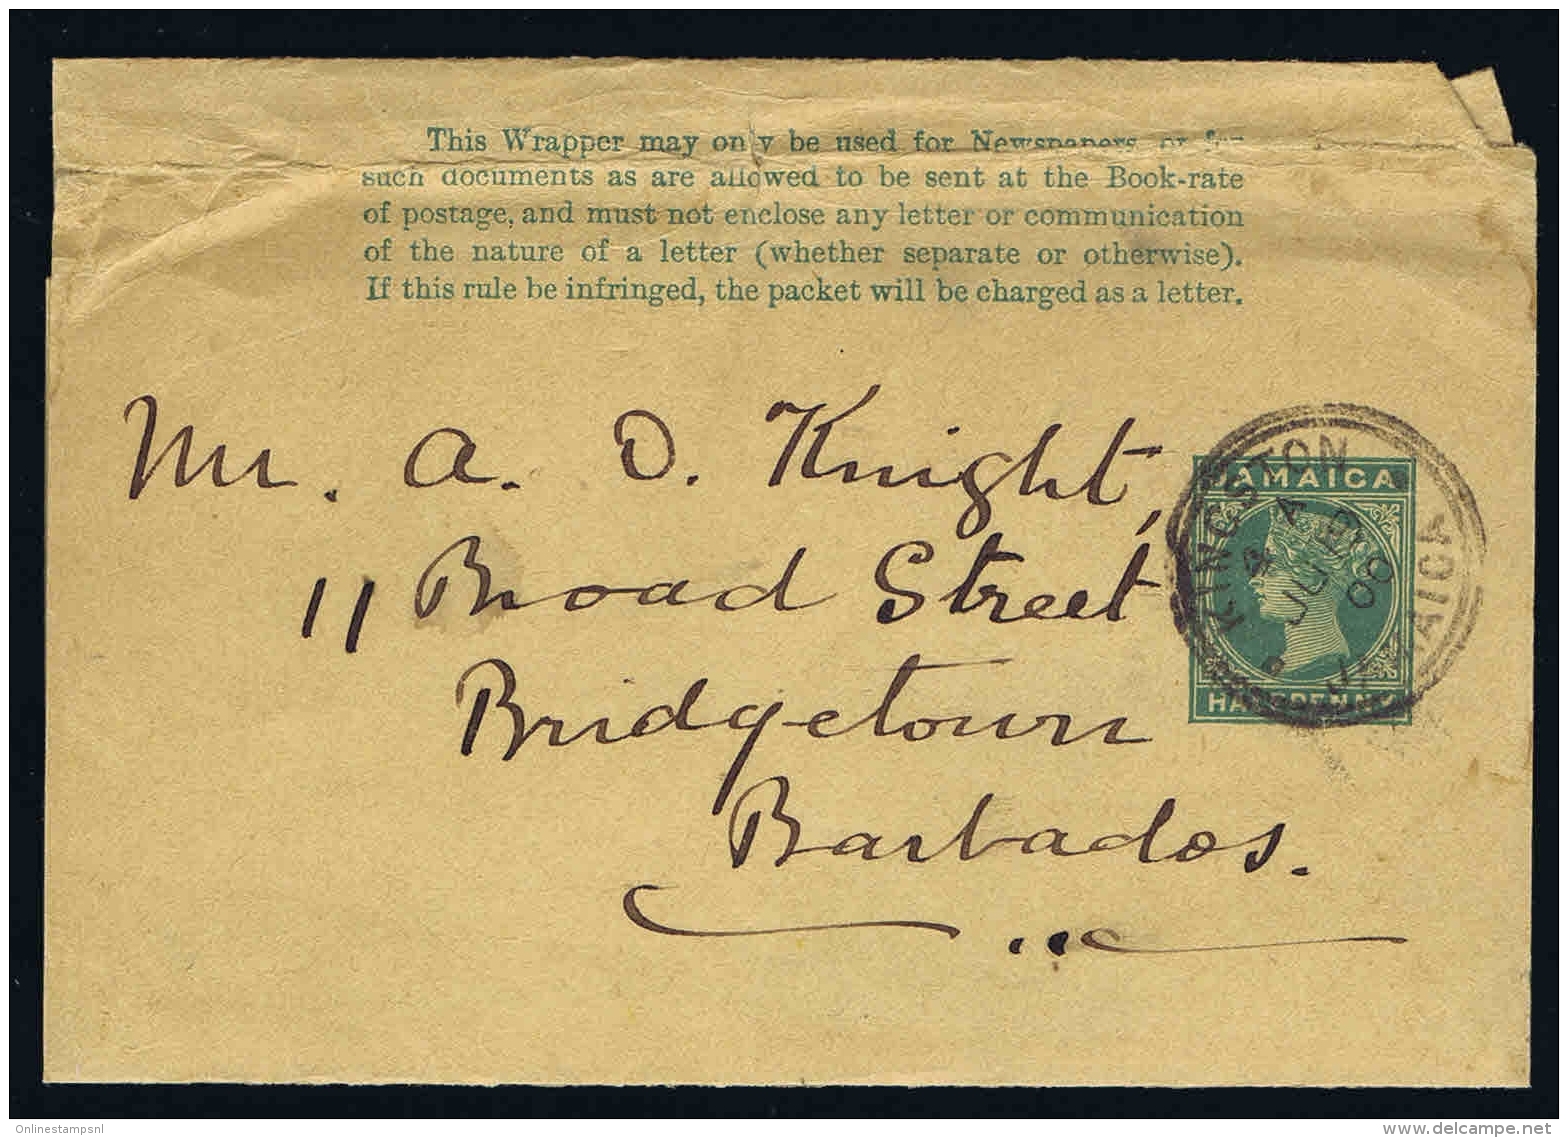 This Wrapper may only be used for Newspapers, or for
such documents as are allowed to be sent at the Book-rate
of postage, and must not enclose any letter or communication
of the nature of a letter (whether separate or otherwise).
If this rule be infringed, the packet will be charged as a letter.
JAMAICA
HALFPENNY
KINGSTON
A
JU
06
JAMAICA
Mr. A. O. Knight,
11 Broad Street
Bridgetown
Barbados.
Onlinestampsnl
delcampe.net